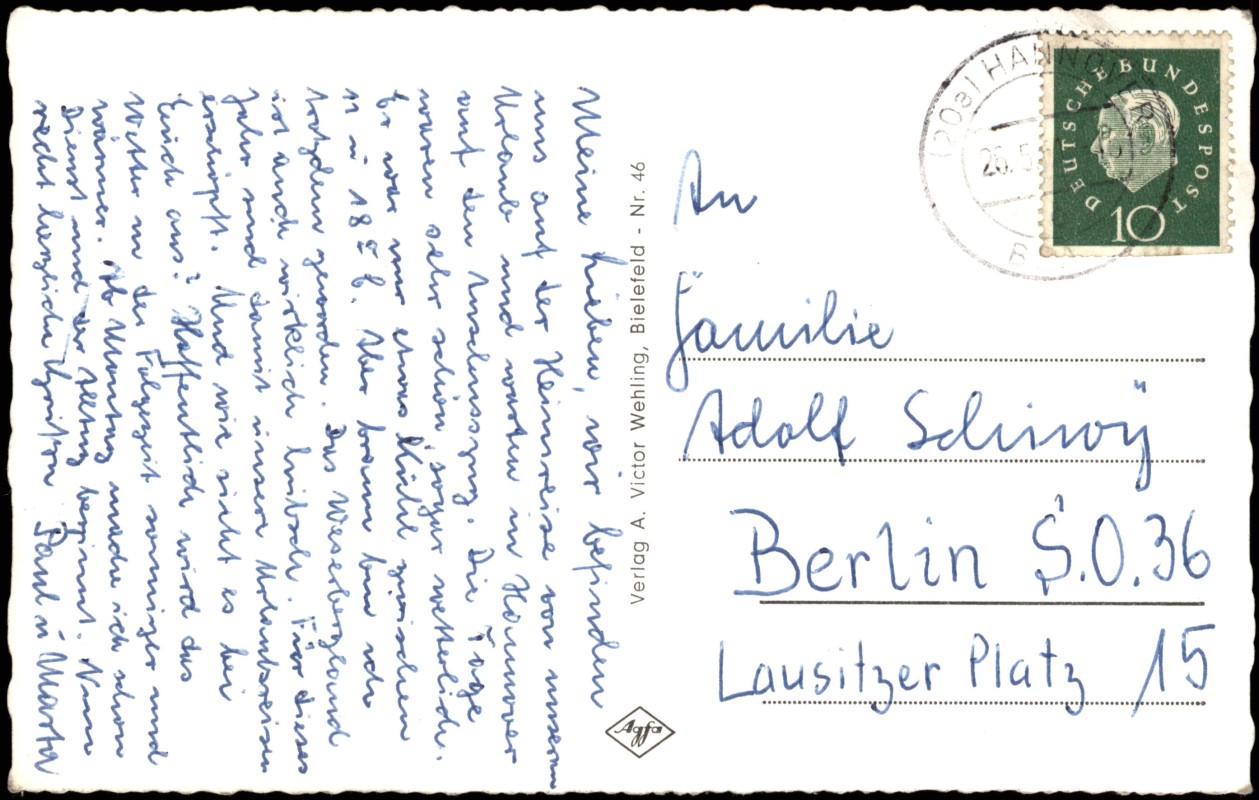 Meine Lieben, wir befinden
uns auf der Heimreise von unserm
Urlaub und warten in Hannover
auf den Anschlusszug. Die Tage
waren sehr schön, sogar wetterlich.
Es war nur etwas kühl zwischen
11 – 18° C. Aber braun bin ich
trotzdem geworden. Das Weserbergland
ist auch wirklich hübsch. Für dieses
Jahr sind damit unsere Urlaubsreisen
erschöpft. Und wie sieht es bei
Euch aus? Hoffentlich wird das
Wetter in der Folgezeit sonniger und
wärmer. Ab Montag mache ich schon
Dienst und der Alltag beginnt. Nun
recht herzliche Grüße von Paul u. Marta
Verlag A. Victor Wehling, Bielefeld - Nr. 46
Agfa
(20a) HANNOVER
26.5.
DEUTSCHE BUNDESPOST
10
An
Familie
Adolf
Berlin S.O.36
Lausitzer Platz 15